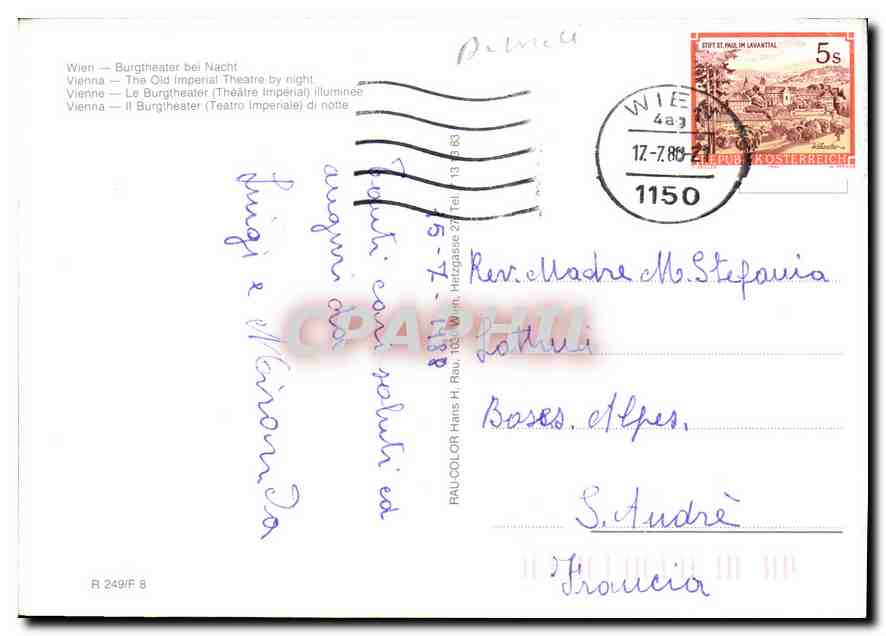 Wien — Burgtheater bei Nacht
Vienna — The Old Imperial Theatre by night
Vienne — Le Burgtheater (Théâtre Impérial) illuminée
Vienna — Il Burgtheater (Teatro Imperiale) di notte
STIFT ST. PAUL IM LAVANTTAL
5s
REPUBLIK ÖSTERREICH
WIEN
17.-7.88-21
1150
15-7-1988
Tanti cari saluti ed
auguri da
Luigi e Miranda
RAU-COLOR Hans H. Rau, 1030 Wien, Hetzgasse 27, Tel. 7 13 13 83
Rev. Madre M. Stefania
Bases. Alpes.
S. Andrè
Francia
R 249/F 8
CPAPHIL